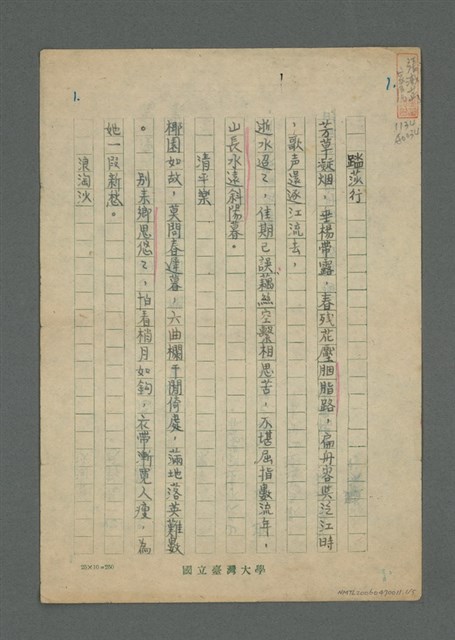 1.
1
1.
踏莎行
芳草凝烟，垂楊帶露，春残花壓胭脂路，扁舟容與泛江時
，歌声還逐江流去，
逝水迢々，佳期已誤藕絲空繫相思苦，不堪屈指數流年，
山長水遠斜陽暮。
清平樂
椰園如故，莫問春遲暮，六曲欄干閒倚處，滿地落英難數
。 別来鄉思悠々，怕看梢月如鈎，衣帶漸寬人瘦，為
她一段新愁。
浪淘沙
25×10=250
國立臺灣大學
1.